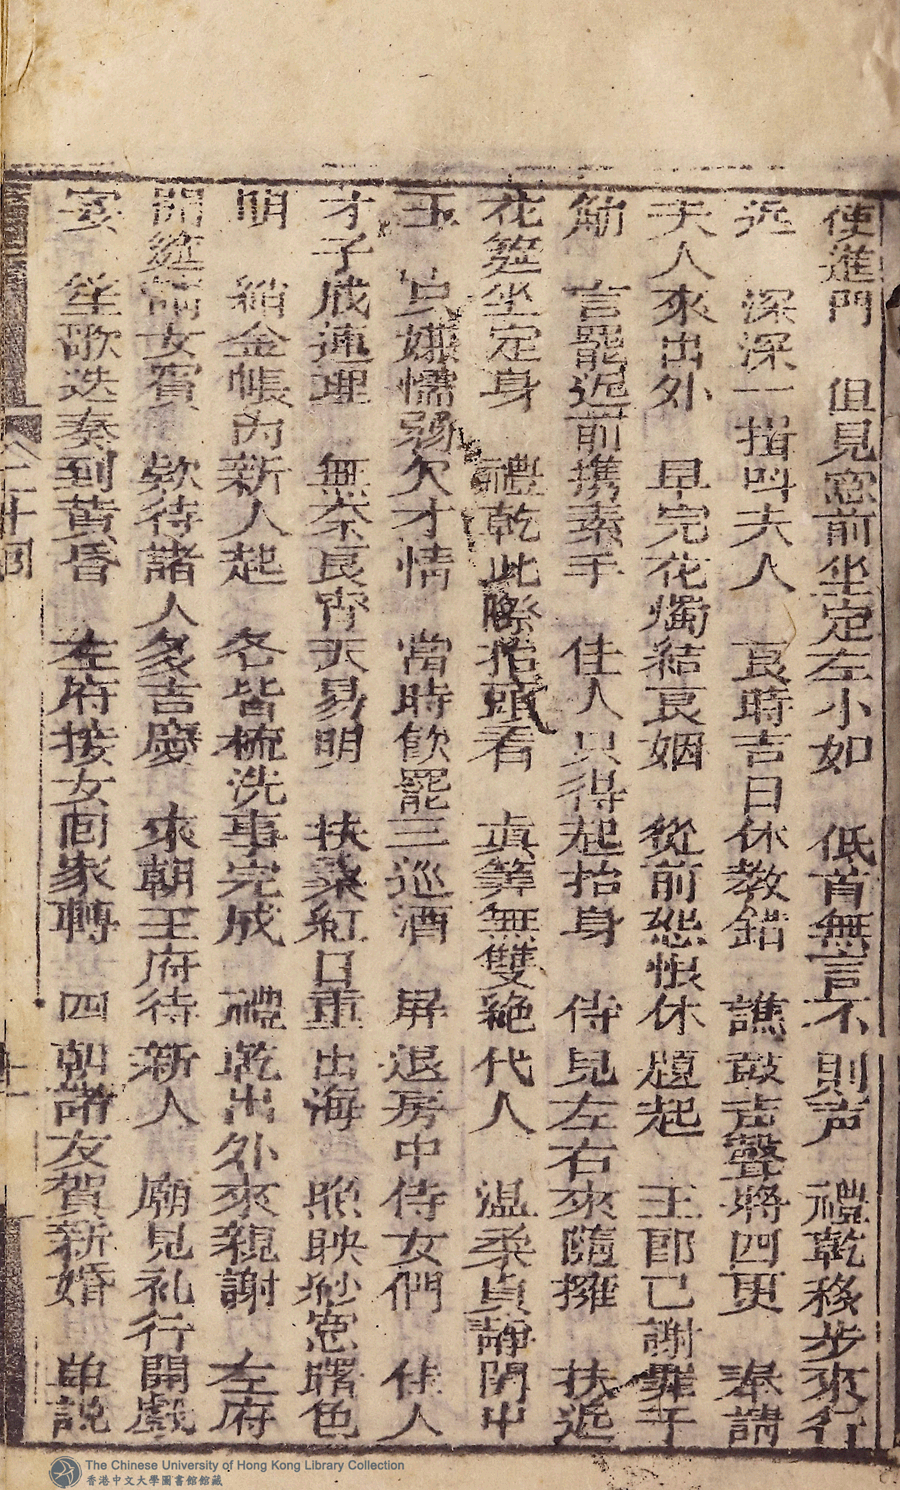 使進門　但見窓前坐定左小如　低首無言不則声　禮乾移步來行
近　深深一揖呌夫人　良時吉日休教錯　譙鼓声聲將四更　奉請
夫人來出外　早完花燭結良姻　從前怨恨休題起　王郎已謝罪于
前　言罷近前携素手　佳人只得起抬身　侍見左右來隨擁　扶近
花筵坐定身　禮乾此際抬頭看　真算無雙絕代人　温柔貞靜閨中
玉　只嫌懦弱欠才情　當時飲罷三巡酒　屏退房中侍女們　佳人
才子成連理　無奈良宵天易明　扶桑紅日重出海　照映紗窓曙色
明　綃金帳內新人起　各皆梳洗事完成　禮乾出外來親謝　左府
開筵請女賓　欵待諸人多吉慶　來朝王府待新人　廟見礼行開戲
宴　笙歌迭奏到黃昏　左府接女回家轉　四朝諸友賀新婚　単説
二十回
十一
The Chinese University of Hong Kong Library Collection
香港中文大學圖書館館藏